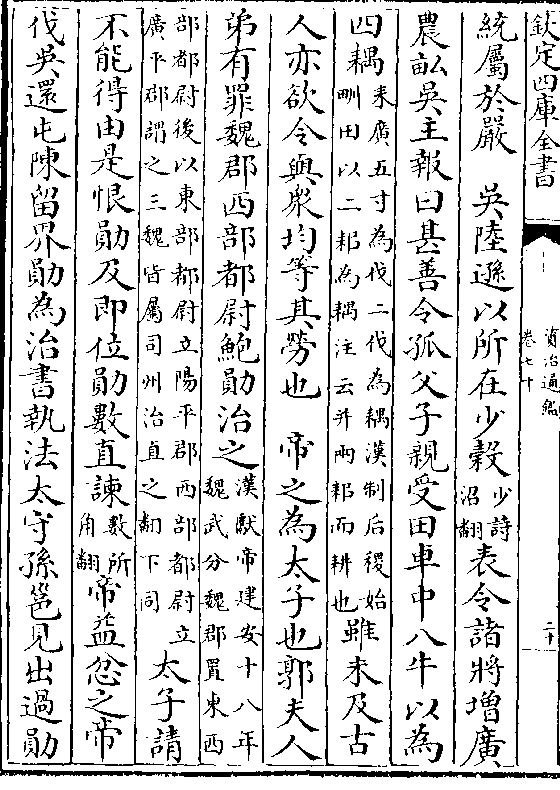 欽定四庫全書
資治通鑑
卷七十
二十
統屬於嚴　吳陸遜以所在少穀少詩沼翻表令諸將增廣
農畝吳主報曰甚善令孤父子親受田車中八牛以為
四耦耒廣五寸為伐二伐為耦漢制后稷始甽田以二耜為耦注云并兩耜而耕也雖未及古
人亦欲令與衆均等其勞也　帝之為太子也郭夫人
弟有罪魏郡西部都尉鮑勛治之漢獻帝建安十八年魏武分魏郡置東西
部都尉後以東部都尉立陽平郡西部都尉立廣平郡謂之三魏皆屬司州治直之翻下同太子請
不能得由是恨勛及即位勛數直諫數所角翻帝益忿之帝
伐吳還屯陳留界勛為治書執法太守孫邕見出過勛